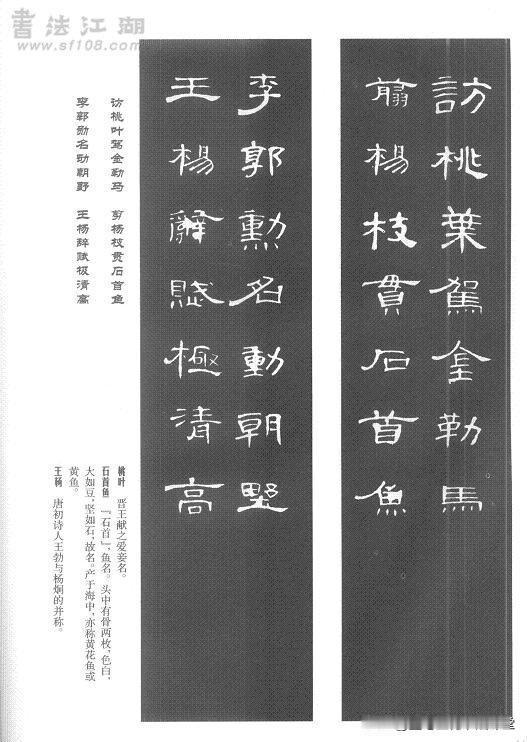 書法江湖
www.sf108.com
訪桃葉駕金勒馬
翦楊枝貫石首魚
李郭勳名動朝野
王楊辭賦極清高
访桃叶驾金勒马 剪杨枝贯石首鱼
李郭勋名动朝野 王杨辞赋极清高
桃叶 晋王献之爱妾名。
石首鱼 『石首』,鱼名。头中有骨两枚,色白,
大如豆,坚如石,故名。产于海中,亦称黄花鱼或
黄鱼。
王杨 唐初诗人王勃与杨炯的并称。